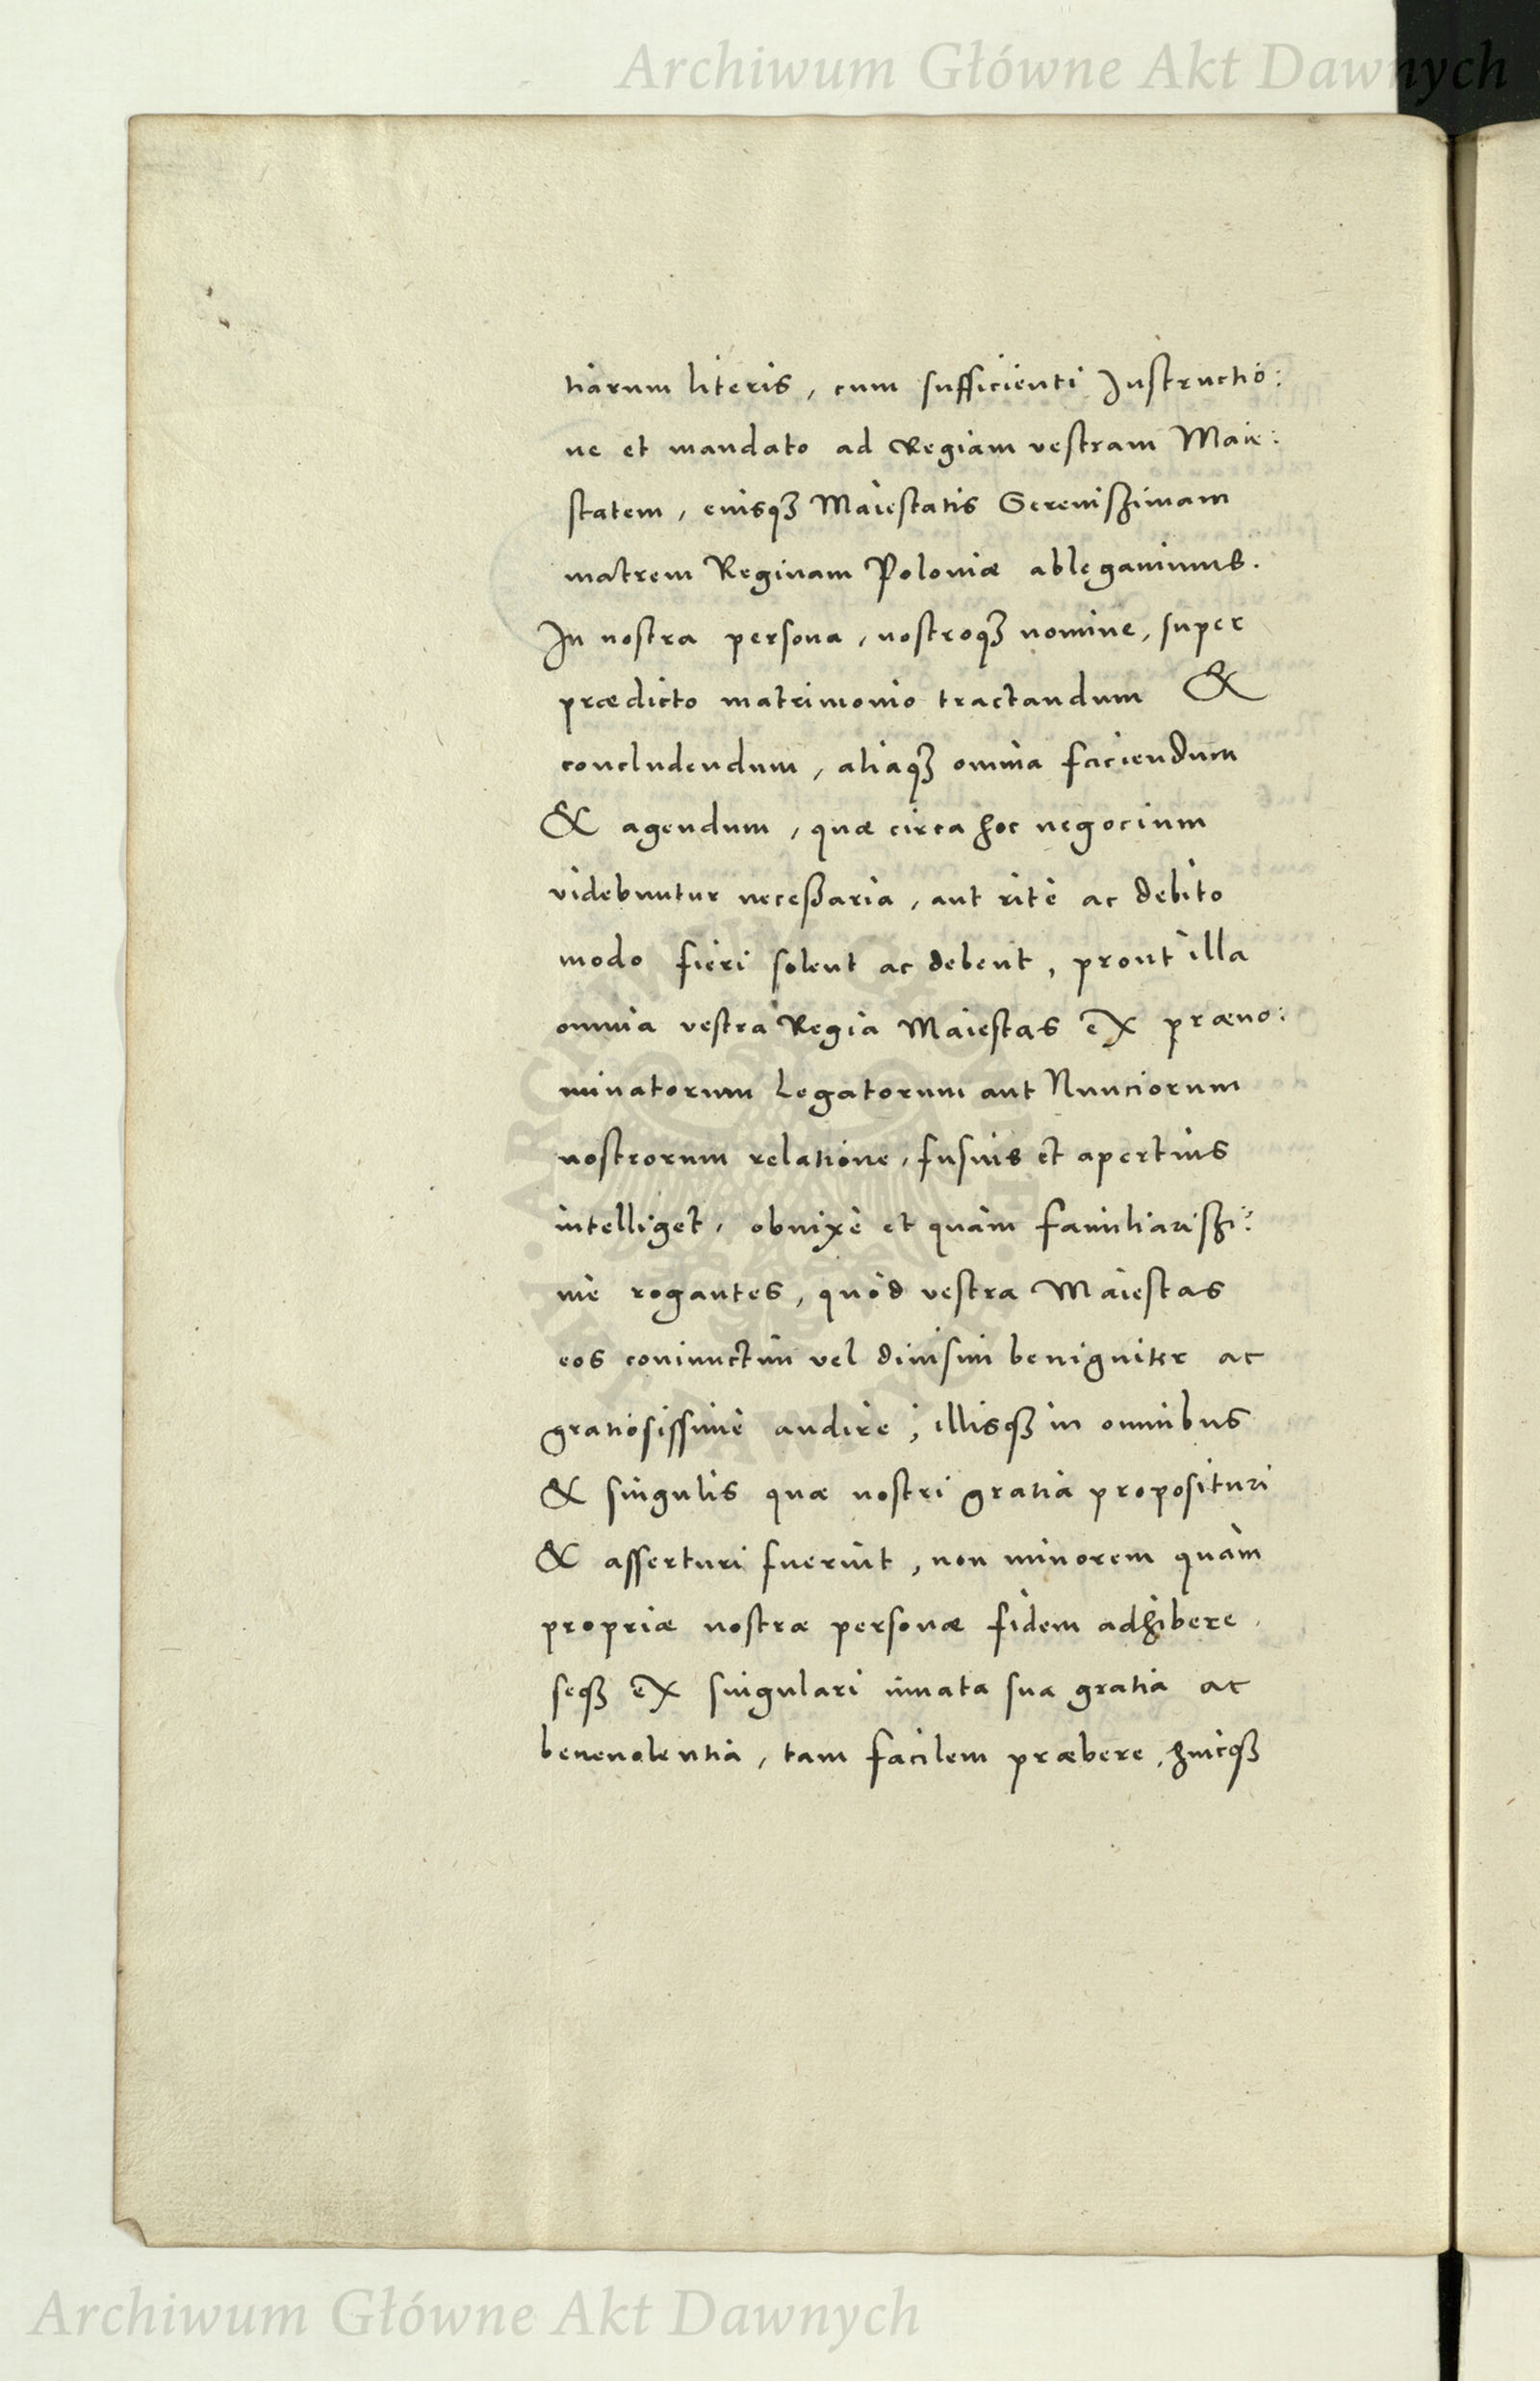 Archiwum Główne Akt Dawnych
tiarum literis, cum sufficienti Instructio:
ne et mandato ad Regiam vestram Maie:
statem, eiusqȝ Maiestatis Serenißimam
matrem Reginam Poloniæ ablegauimus.
In nostra persona, nostroqȝ nomine, super
prædicto matrimonio tractandum &
concludendum, aliaqȝ omnia faciendum
& agendum, quæ circa hoc negocium
videbuntur neceßaria, aut ritè ac debito
modo fieri solent ac debent, prout illa
omnia vestra Regia Maiestas ex præno:
minatorum Legatorum aut Nunciorum
nostrorum relatione, fusius et apertius
intelliget, obnixè et quàm familiarißi:
mè rogantes, quòd vestra Maiestas
eos coniunctim vel diuisim benigniter ac
gratiosissimè audire, illisqȝ in omnibus
& singulis quæ nostri gratia proposituri
& asserturi fuerint, non minorem quàm
propriæ nostræ personæ fidem adhibere,
seqȝ ex singulari innata sua gratia ac
beneuolentia, tam facilem præbere, huicqȝ
ARCHIWUM GŁÓWNE AKT DAWNYCH
Archiwum Główne Akt Dawnych